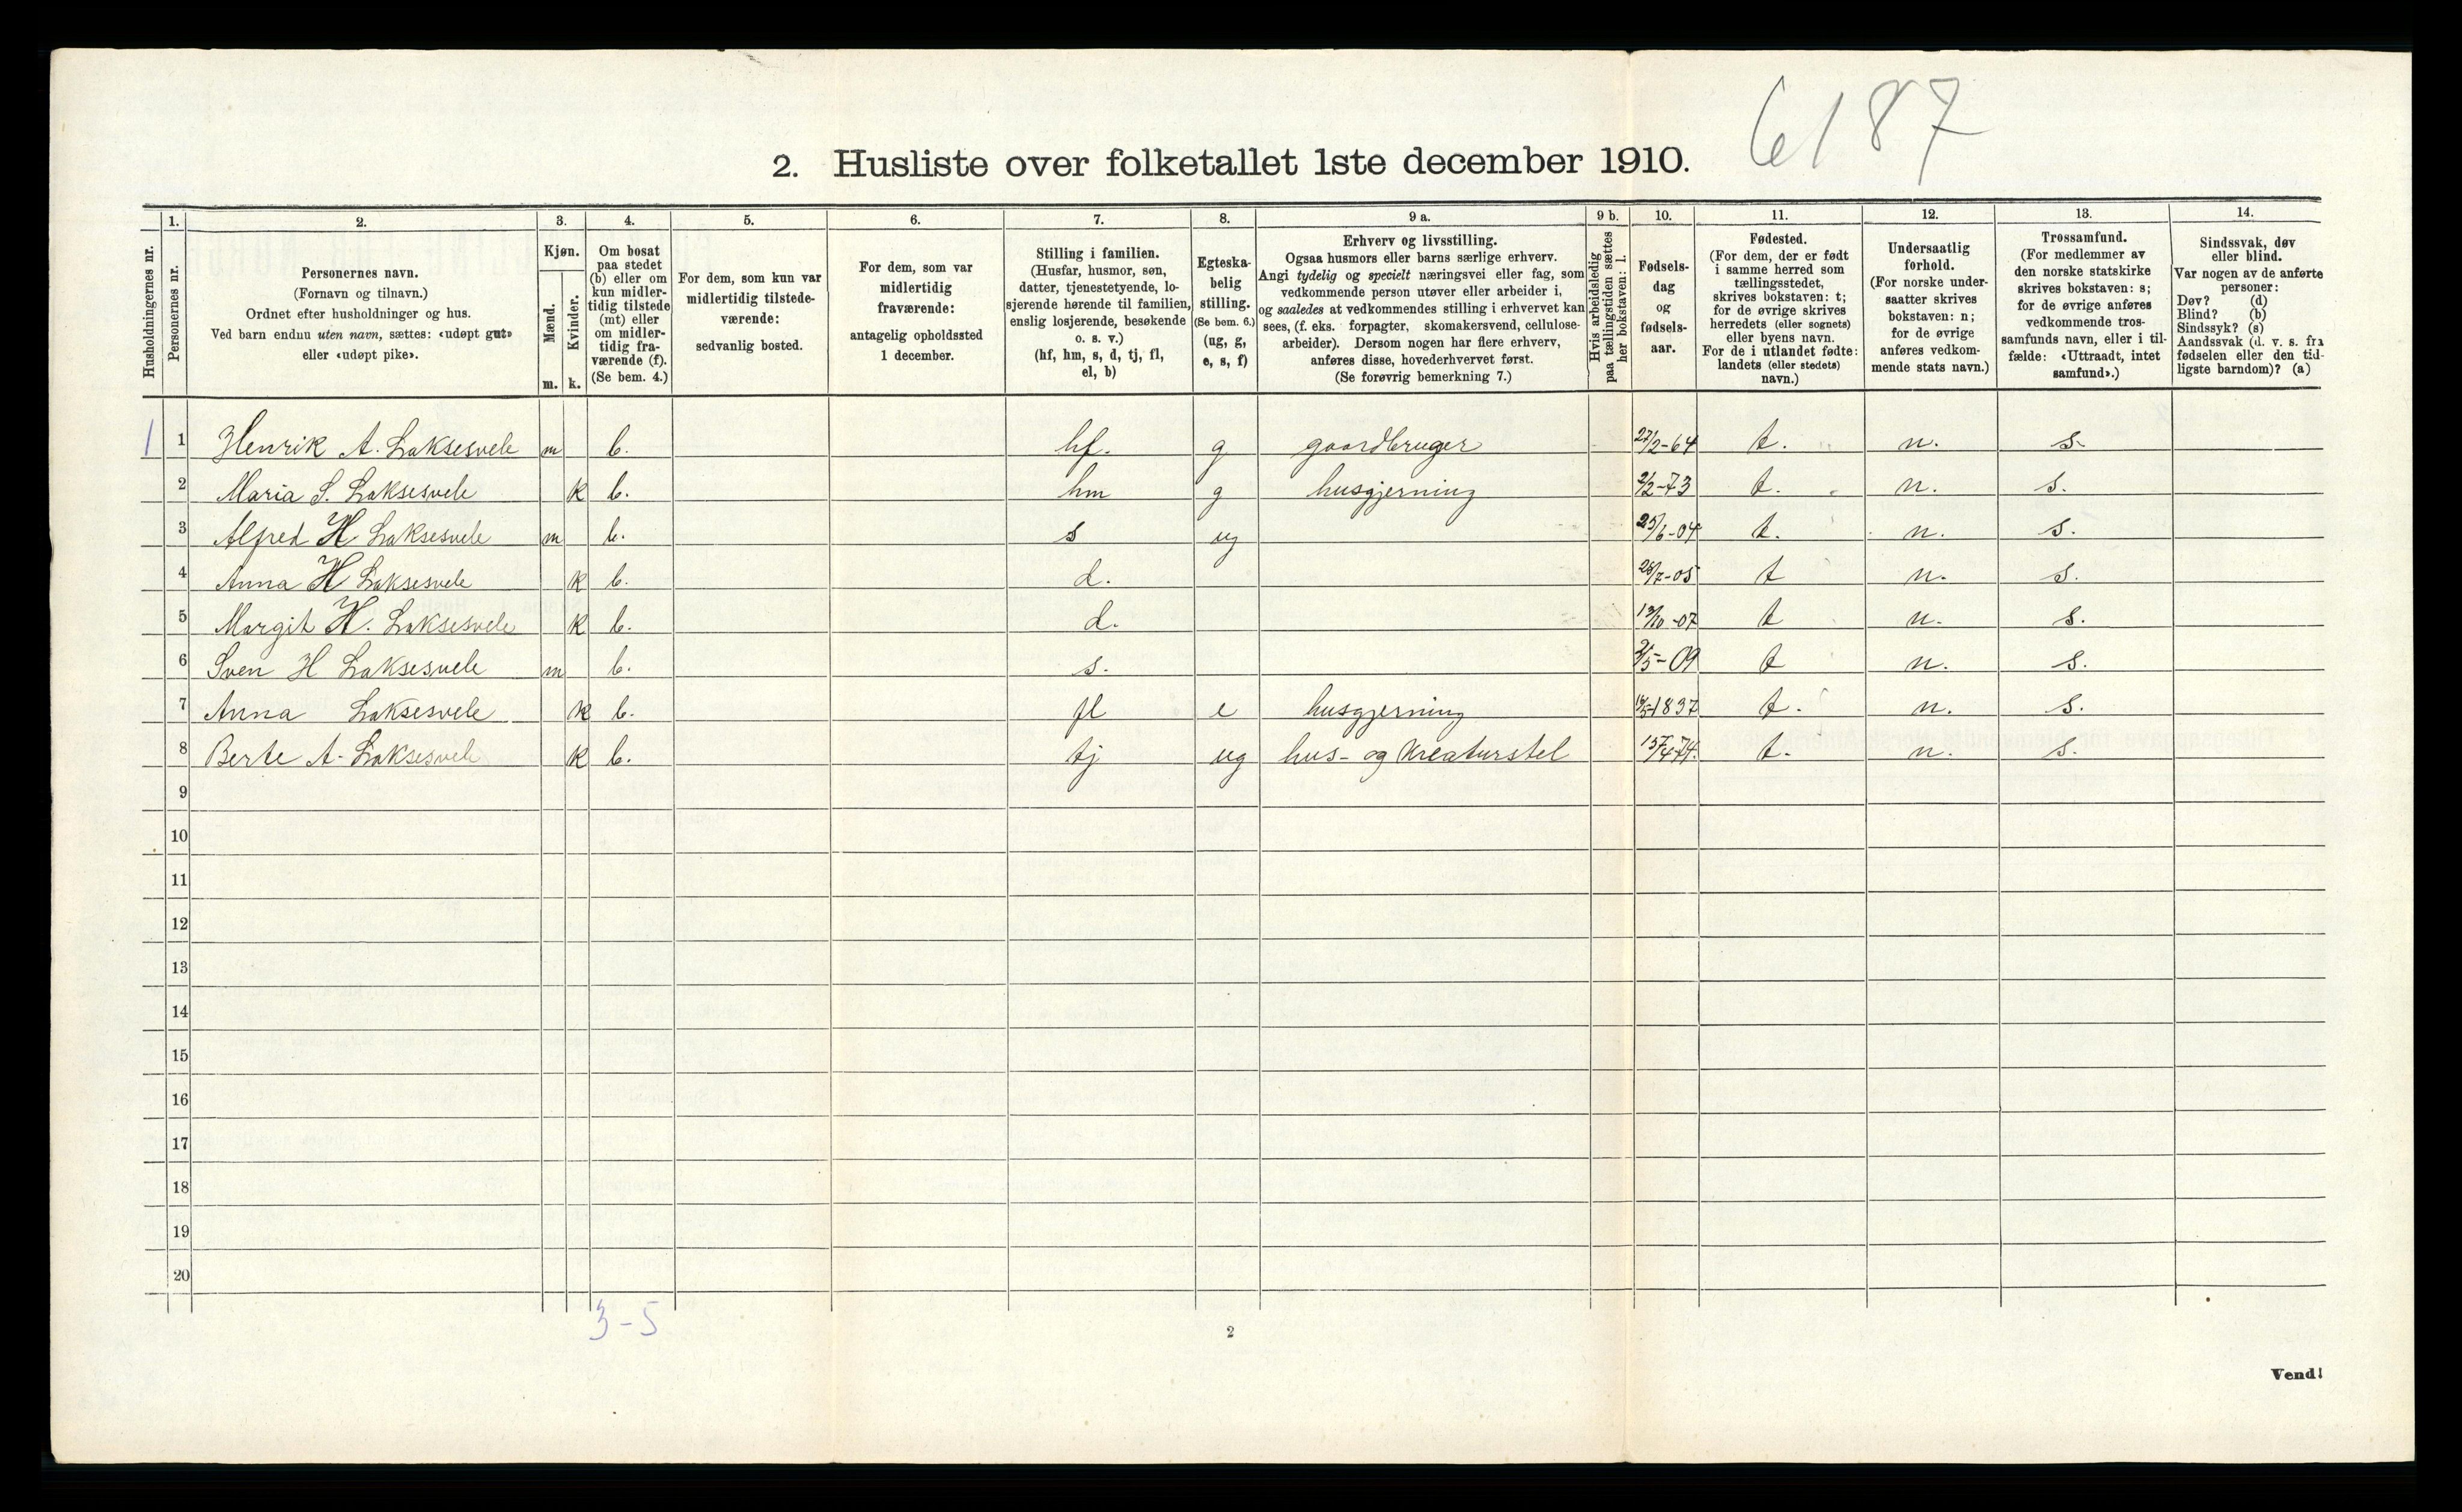 6187
2. Husliste over folketallet 1ste december 1910.
Husholdningernes nr.
1.
Personernes nr.
2.
Personernes navn.
(Fornavn og tilnavn.)
Ordnet efter husholdninger og hus.
Ved barn endnu uten navn, sættes: «udøpt gut»
eller «udøpt pike».
3.
Kjøn.
Mænd.
Kvinder.
m. k.
4.
Om bosat
paa stedet
(b) eller om
kun midler-
tidig tilstede
(mt) eller
om midler-
tidig fra-
værende (f).
(Se bem. 4.)
5.
For dem, som kun var
midlertidig tilstede-
værende:
sedvanlig bosted.
6.
For dem, som var
midlertidig
fraværende:
antagelig opholdssted
1 december.
7.
Stilling i familien.
(Husfar, husmor, søn,
datter, tjenestetyende, lo-
sjerende hørende til familien,
enslig losjerende, besøkende
o. s. v.)
(hf, hm, s, d, tj, fl,
el, b)
8.
Egteska-
belig
stilling.
(Se bem. 6.)
(ug, g,
e, s, f)
9 a.
Erhverv og livsstilling.
Ogsaa husmors eller barns særlige erhverv.
Angi tydelig og specielt næringsvei eller fag, som
vedkommende person utøver eller arbeider i,
og saaledes at vedkommendes stilling i erhvervet kan
sees, (f. eks. forpagter, skomakersvend, cellulose-
arbeider). Dersom nogen har flere erhverv,
anføres disse, hovederhvervet først.
(Se forøvrig bemerkning 7.)
9 b.
Hvis arbeidsledig
paa tællingstiden sættes
her bokstaven: l.
10.
Fødsels-
dag
og
fødsels-
aar.
11.
Fødested.
(For dem, der er født
i samme herred som
tællingsstedet,
skrives bokstaven: t;
for de øvrige skrives
herredets (eller sognets)
eller byens navn.
For de i utlandet fødte:
landets (eller stedets)
navn.)
12.
Undersaatlig
forhold.
(For norske under-
saatter skrives
bokstaven: n;
for de øvrige
anføres vedkom-
mende stats navn.)
13.
Trossamfund.
(For medlemmer av
den norske statskirke
skrives bokstaven: s;
for de øvrige anføres
vedkommende tros-
samfunds navn, eller i til-
fælde: «Uttraadt, intet
samfund».)
14.
Sindssvak, døv
eller blind.
Var nogen av de anførte
personer:
Døv? (d)
Blind? (b)
Sindssyk? (s)
Aandssvak (d. v. s. fra
fødselen eller den tid-
ligste barndom)? (a)
1 1 Henrik A. Laksesvele m b. hf. g gaardbruger 27/2-64 t. n. s.
2 Maria S. Laksesvele k b. hm g husgjerning 2/2-73 t. n. s.
3 Alfred H Laksesvele m b. s ug 25/6-04 t. n. s.
4 Anna H Laksesvele k b. d. 26/7-05 t n. s.
5 Margit H. Laksesvele k b. d. t n. s.
6 Sven H Laksesvele m b. s. t n. s.
7 Anna Laksesvele k b. fl e husgjerning t. n. s.
8 Berte A. Laksesvele k b. tj ug hus- og Kreaturstel 15/4-74. t. n. s.
9
10
11
12
13
14
15
16
17
18
19
20
3-5
2
Vend!